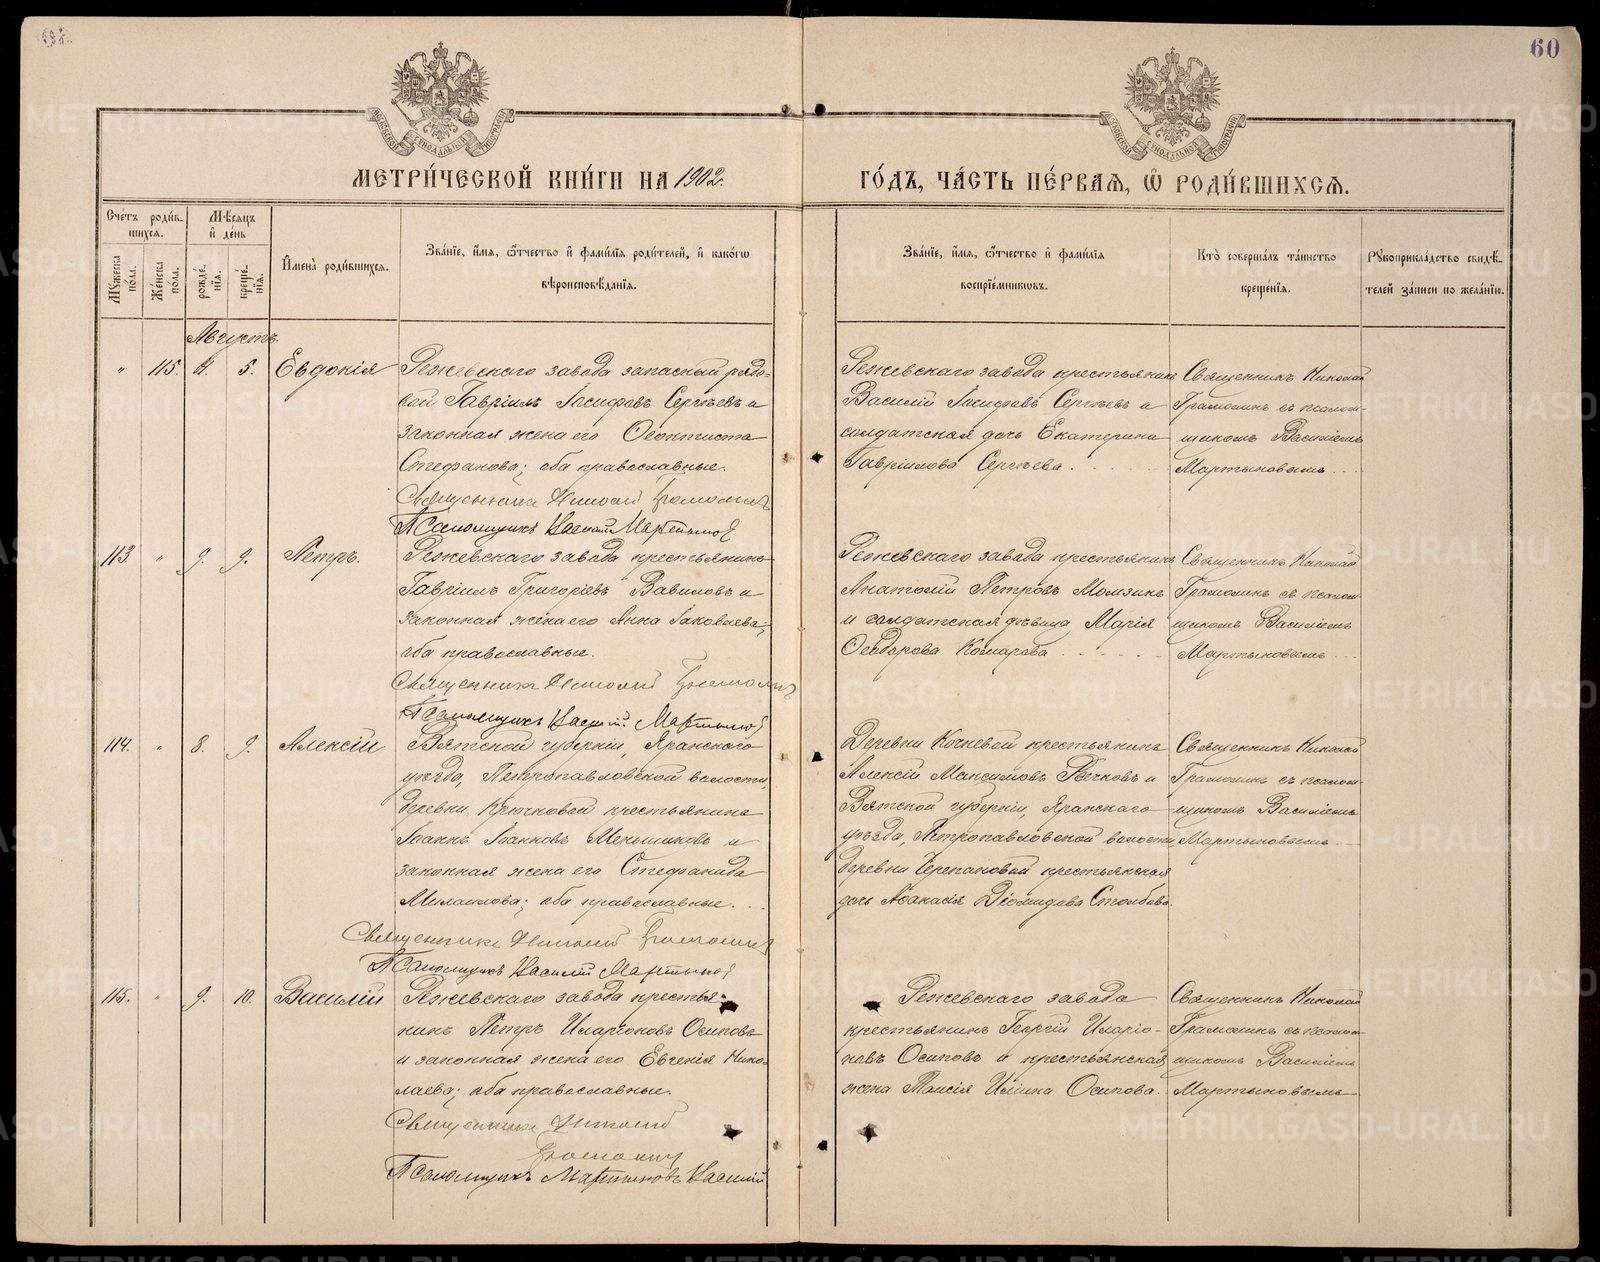 60
МЕТРИ́ЧЕСКОЙ КНИ́ГИ НА 1902.
ГО́ДЪ, ЧА́СТЬ ПЕ́РВАЯ, Ѽ РОДИ́ВШИХСЯ.
Сче́тъ роди́в-
шихся.
Мѣсяцъ
и҆ де́нь
Му́жеска по́ла.
Же́нска по́ла.
рожде́-
нїя.
креще́-
нїя.
И҆мена̀ роди́вшихся.
Зва́нїе, и҆́мя, ѻ҆́тчество и҆ фами́лїа роди́телей, и҆ како́гѡ
вѣроисповѣ́данїя.
Зва́нїе, и҆́мя, ѻ҆́тчество и҆ фами́лїа
воспрїе́мниковъ.
Кто̀ соверша́лъ та́инство
креще́нїя.
Рукоприкла́дство свидѣ́-
телей за́писи по жела́нїю.
Августъ.
" 115. 4. 5. Евдокія
Режевскаго завода запасный рядо-
вой Гавріилъ Іосифовъ Сергѣевъ и
законная жена его Ѳеоктиста
Стефанова; оба православные.
Священникъ Николай Грамолинъ
Псаломщикъ Василій Мартыновъ
Режевскаго завода крестьянинъ
Василій Іосифовъ Сергѣевъ и
солдатская дочь Екатерина
Гавріилова Сергѣева.
Священникъ Николай
Грамолинъ съ псалом-
щикомъ Василіемъ
Мартыновымъ
113. " 9. 9. Петръ.
Режевскаго завода крестьянинъ
Гавріилъ Григоріевъ Вавиловъ и
законная жена его Анна Іаковлева;
оба православные.
Священникъ Николай Грамолинъ
Псаломщикъ Василій Мартыновъ
Режевскаго завода крестьянинъ
Анатолій Петровъ Момзинъ
и солдатская дѣвица Марія
Ѳеодорова Комарова
Священникъ Николай
Грамолинъ съ псалом-
щикомъ Василіемъ
Мартыновымъ
114. " 8. 9. Алексій
Вятской губерніи, Яранскаго
уѣзда, Петропавловской волости,
деревни Крючковой крестьянинъ
Іоаннъ Іоанновъ Меньшиковъ и
законная жена его Стефанида
Михаилова; оба православные.
Священникъ Николай Грамолинъ
Псаломщикъ Василій Мартыновъ
Деревни Кочневой крестьянинъ
Алексій Максимовъ Рычковъ и
Вятской губерніи, Яранскаго
уѣзда, Петропавловской волости
деревни Черепановой крестьянская
дочь Аѳанасія Діомидова Столбова
Священникъ Николай
Грамолинъ съ псалом-
щикомъ Василіемъ
Мартыновымъ
115. " 9. 10. Василій
Режевскаго завода крестья-
нинъ Петръ Иларіоновъ Осиповъ
и законная жена его Евгенія Нико-
лаева; оба православные.
Священникъ Николай
Грамолинъ
Псаломщикъ Мартыновъ Василій
Режевскаго завода
крестьянинъ Георгій Иларіо-
новъ Осиповъ и крестьянская
жена Таисія Ильина Осипова.
Священникъ Николай
Грамолинъ съ псалом-
щикомъ Василіемъ
Мартыновымъ
METRIKI.GASO-URAL.RU